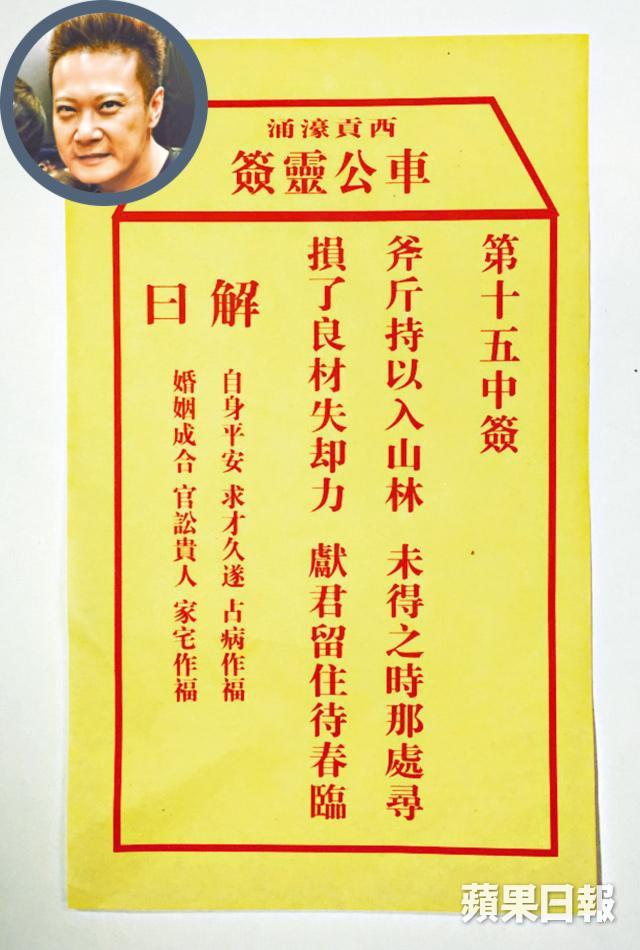 西貢濠涌
車公靈簽
第十五中簽
斧斤持以入山林 未得之時那處尋
損了良材失却力 獻君留住待春臨
解曰
自身平安 求才久遂 占病作福
婚姻成合 官訟貴人 家宅作福
蘋果日報